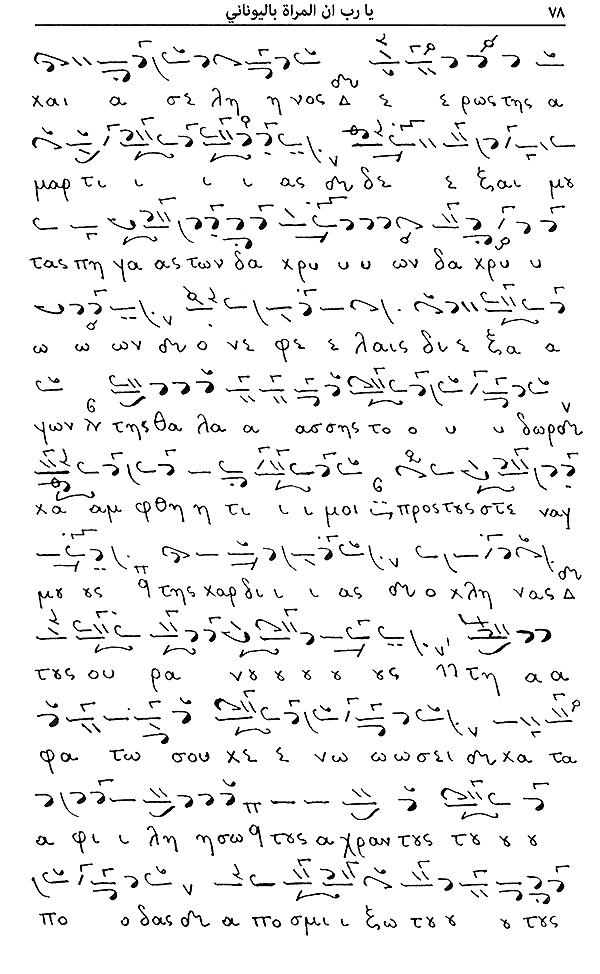 ٧٨ يا رب ان المراة باليوناني
και α σε λη η νος ε ε ρως της α
μαρ τι ι ι ι ας δε ε ξαι μȣ
τας πη γα ας των δα κρυ υ υ ων δα κρυ υ
ω ω ων ο νε φε ε λαις δι ε ξα α
γων της θα λα α ασσης το ο υ υ δωρ
κα αμ φθη η τι ι ι μοι προς τȣς στε ναγ
μȣ ȣς της καρ δι ι ι ας ο κλη νας
τȣς ου ρα νȣ ȣ ȣ ȣ ȣς τη α α
φα τω σου κε ε νω ω ω σει κα τα
α φι ι λη η σω τȣς α χραν τȣς τȣ ȣ ȣ
πο ο δας α πο σμι ι ξω τȣ ȣ ȣ τȣς